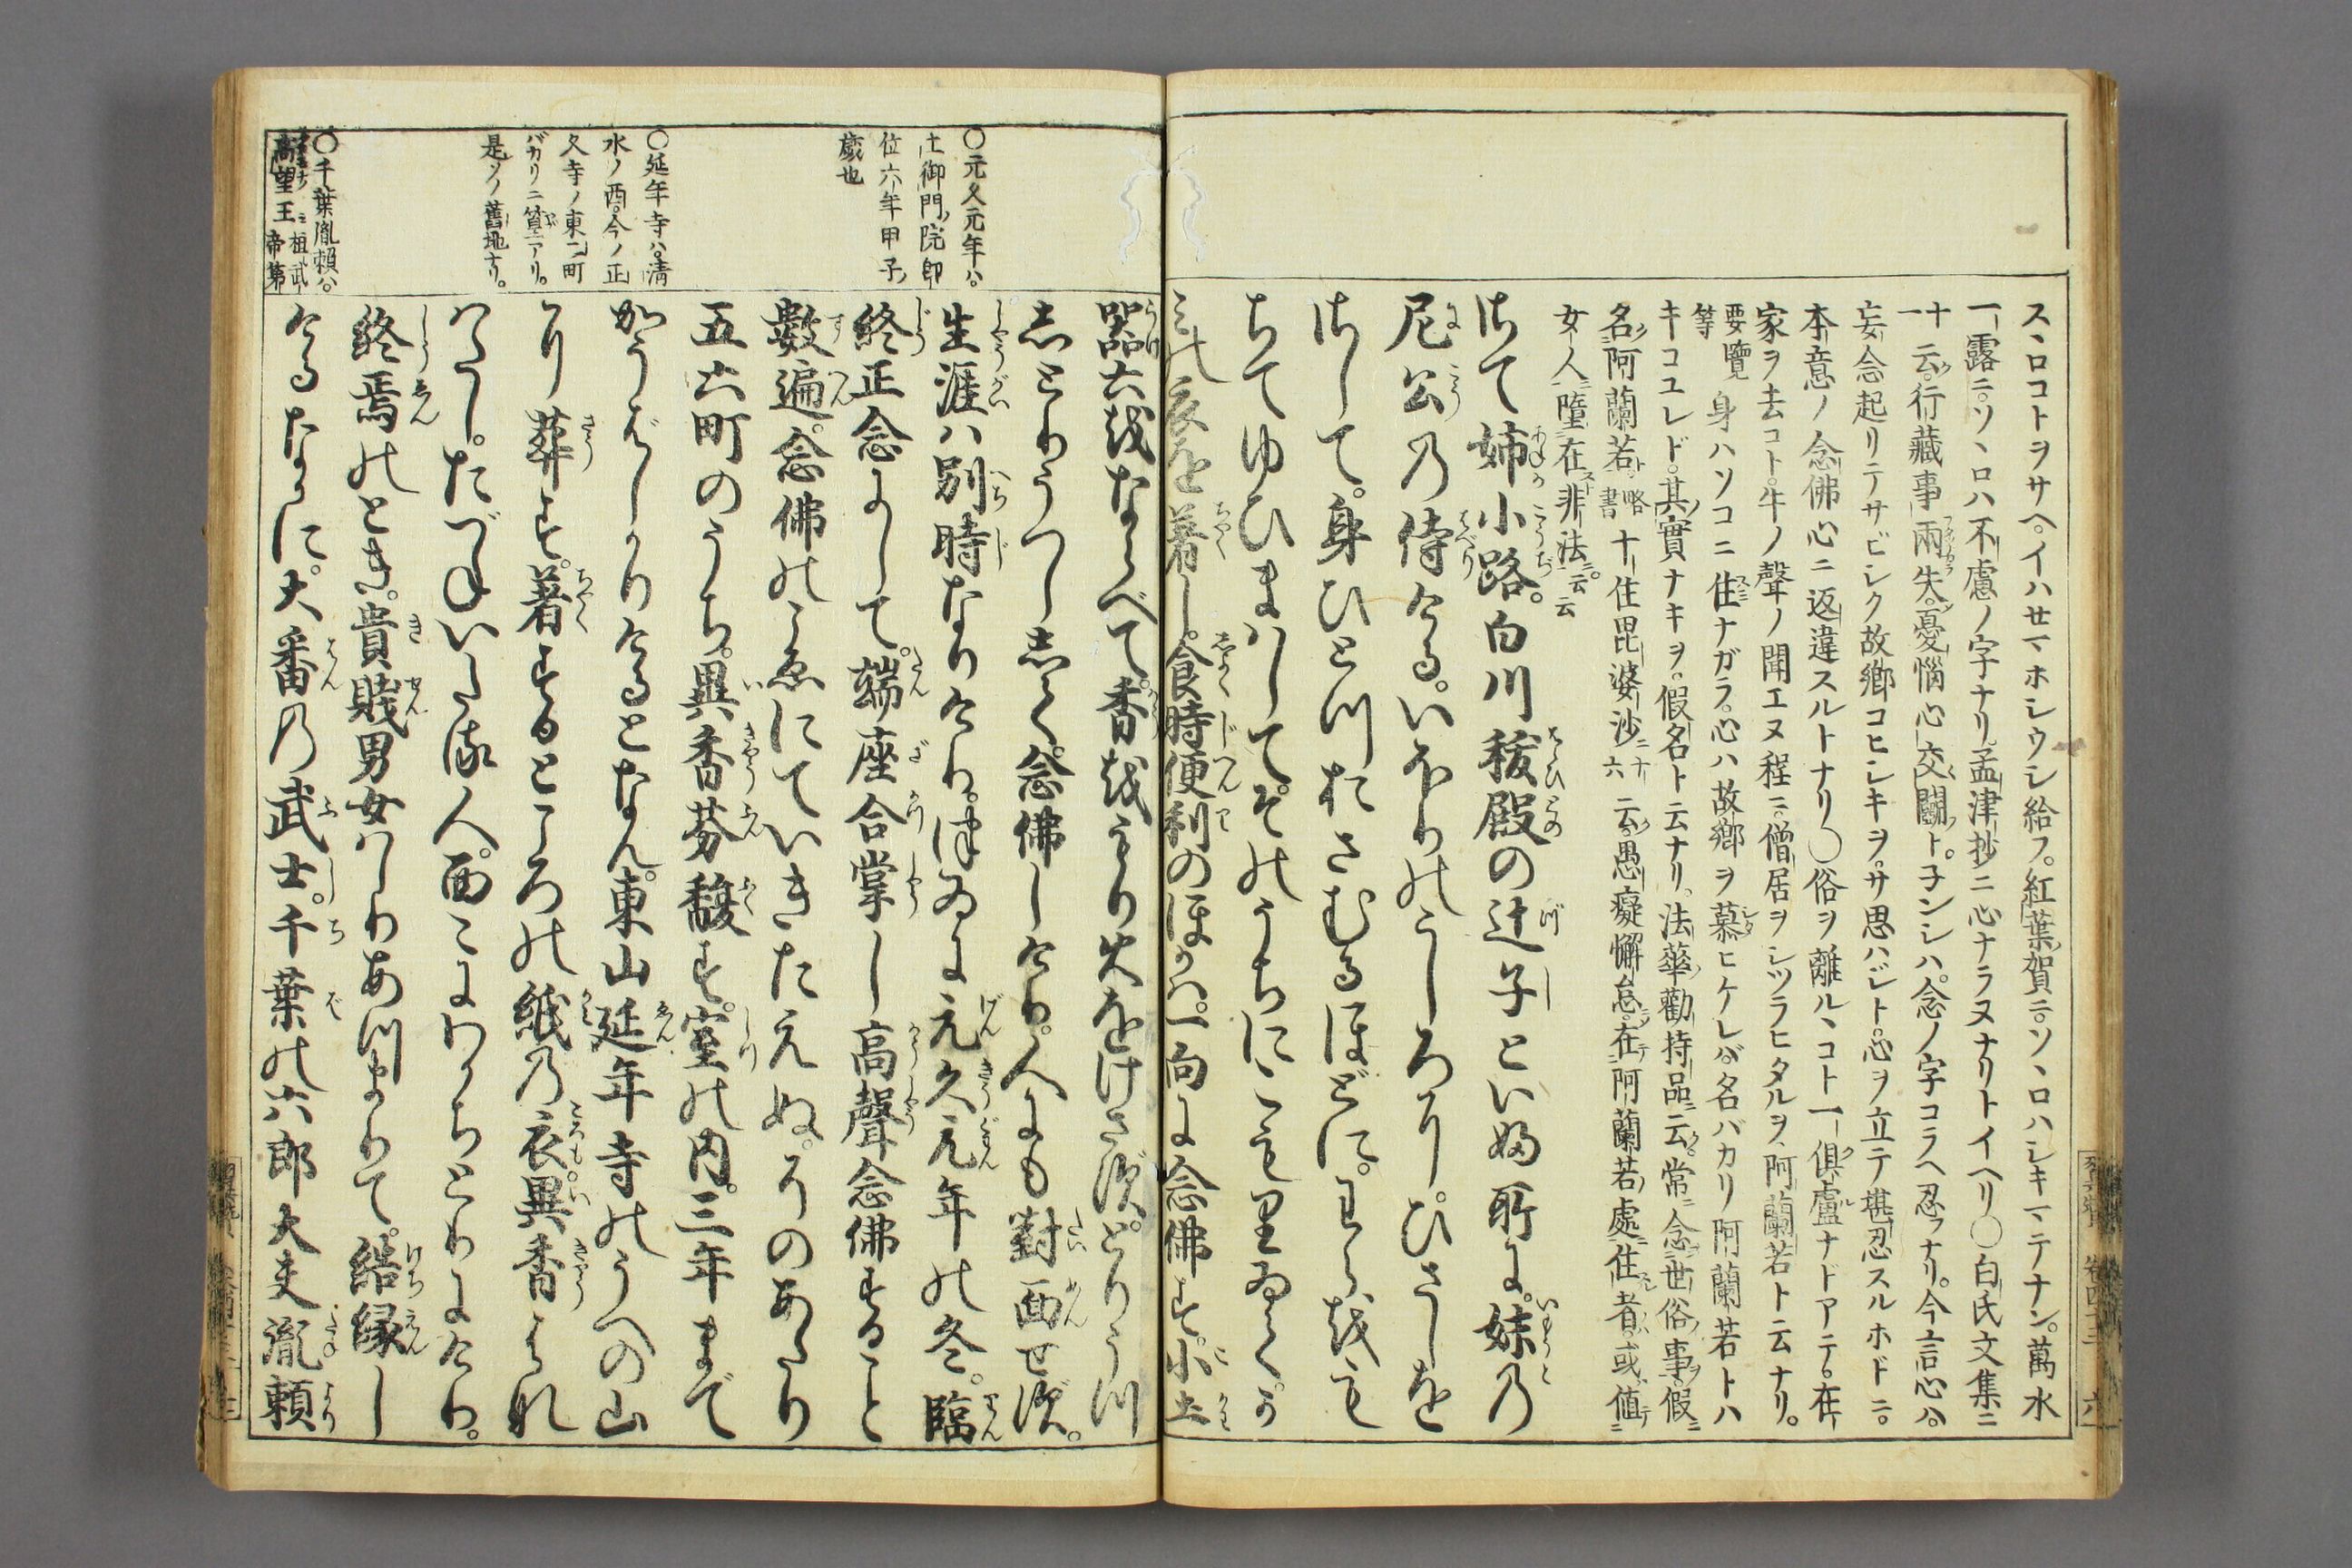 スヽロコトヲサヘ。イハセマホシウシ給フ。紅葉賀ニ。ソヽロハシキマテナン。萬水
一露ニ。ソヽロハ不慮ノ字ナリ。孟津抄ニ心ナラヌナリトイヘリ〇白氏文集ニ
十一云。行藏事兩失。憂惱心交鬭ト。子ンシハ。念ノ字コラヘ忍フナリ。今言心ハ。
妄念起リテサビシク故鄕コヒシキヲ。サ思ハジト。心ヲ立テ堪忍スルホドニ。
本意ノ念佛心ニ返違スルトナリ〇俗ヲ離ルヽコト一俱盧ナドアニテ。在
家ヲ去コト。牛ノ聲ノ聞エヌ程ニ。僧居ヲシツラヒタルヲ、阿蘭若ト云ナリ。
要覽等身ハソコニ住ナガラ。心ハ故鄕ヲ慕ヒケレバ。名バカリ阿蘭若トハ
キコユレド。其實ナキヲ。假名ト云ナリ。法華勸持品ニ云。常ニ念世俗ノ事。假
名阿蘭若。略書十住毘婆沙十六云。愚癡懈怠。在阿蘭若處住者。或値
女人墮在非法。云云
さて姉小路。白川祓殿の辻子といふ所に。妹の
尼公の侍ける。いほりのうしろに。ひさしを
さして。身ひとつおさむるほどに。わらをも
ちてゆひまはして。そのうちにこもりゐて。か
みの衣を著し。食時便利のほかは。一向に念佛す。小土
器六をならべて。香をもり火をけさず。とりうつ
しとりうつししく。念佛しけり。人にも對面せず。
生涯は別時なりけり。つゐに元久元年の冬。臨
終正念にして。端座合掌し高聲念佛すること
數遍。念佛のこゑにていきたえぬ。そのあたり
五六町のうち。異香芬馥す。室の内。三年まで
かうばしかりけるとなん。東山延年寺のうへの山
に葬す。著するところの紙の衣。異香はな
はだし。たづねいたる人。面々にわかちとりにけり。
終焉のとき。貴賤男女はしりあつまりて。結縁し
けるなかに。大番の武士。千葉の六郎大夫胤頼
〇元久元年ハ。
土御門院即
位六年甲子ノ
歲也
〇延年寺ハ。清
水ノ酉。今ノ正
久寺ノ東一町
バカリニ䉼アリ。
是ソノ舊地ナリ。
〇千葉胤賴ハ。
高望王祖武帝第